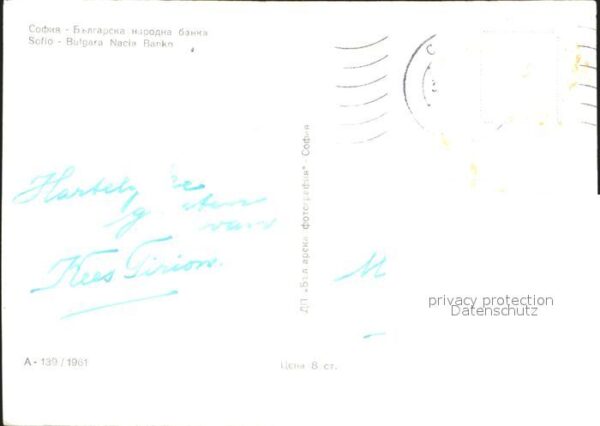 София - Българска народна банка
Sofio - Bulgara Nacia Banko
Hartelijke
groeten
van
Kees Tirions.
ДП „Българска фотография“ - София
M
privacy protection
Datenschutz
А - 139 / 1961
Цена 8 ст.